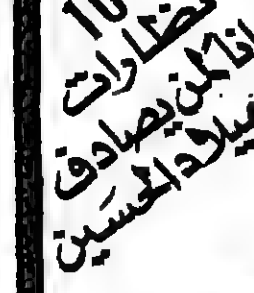 10
نظارات
لمن يصادف
ميلاد الحسين